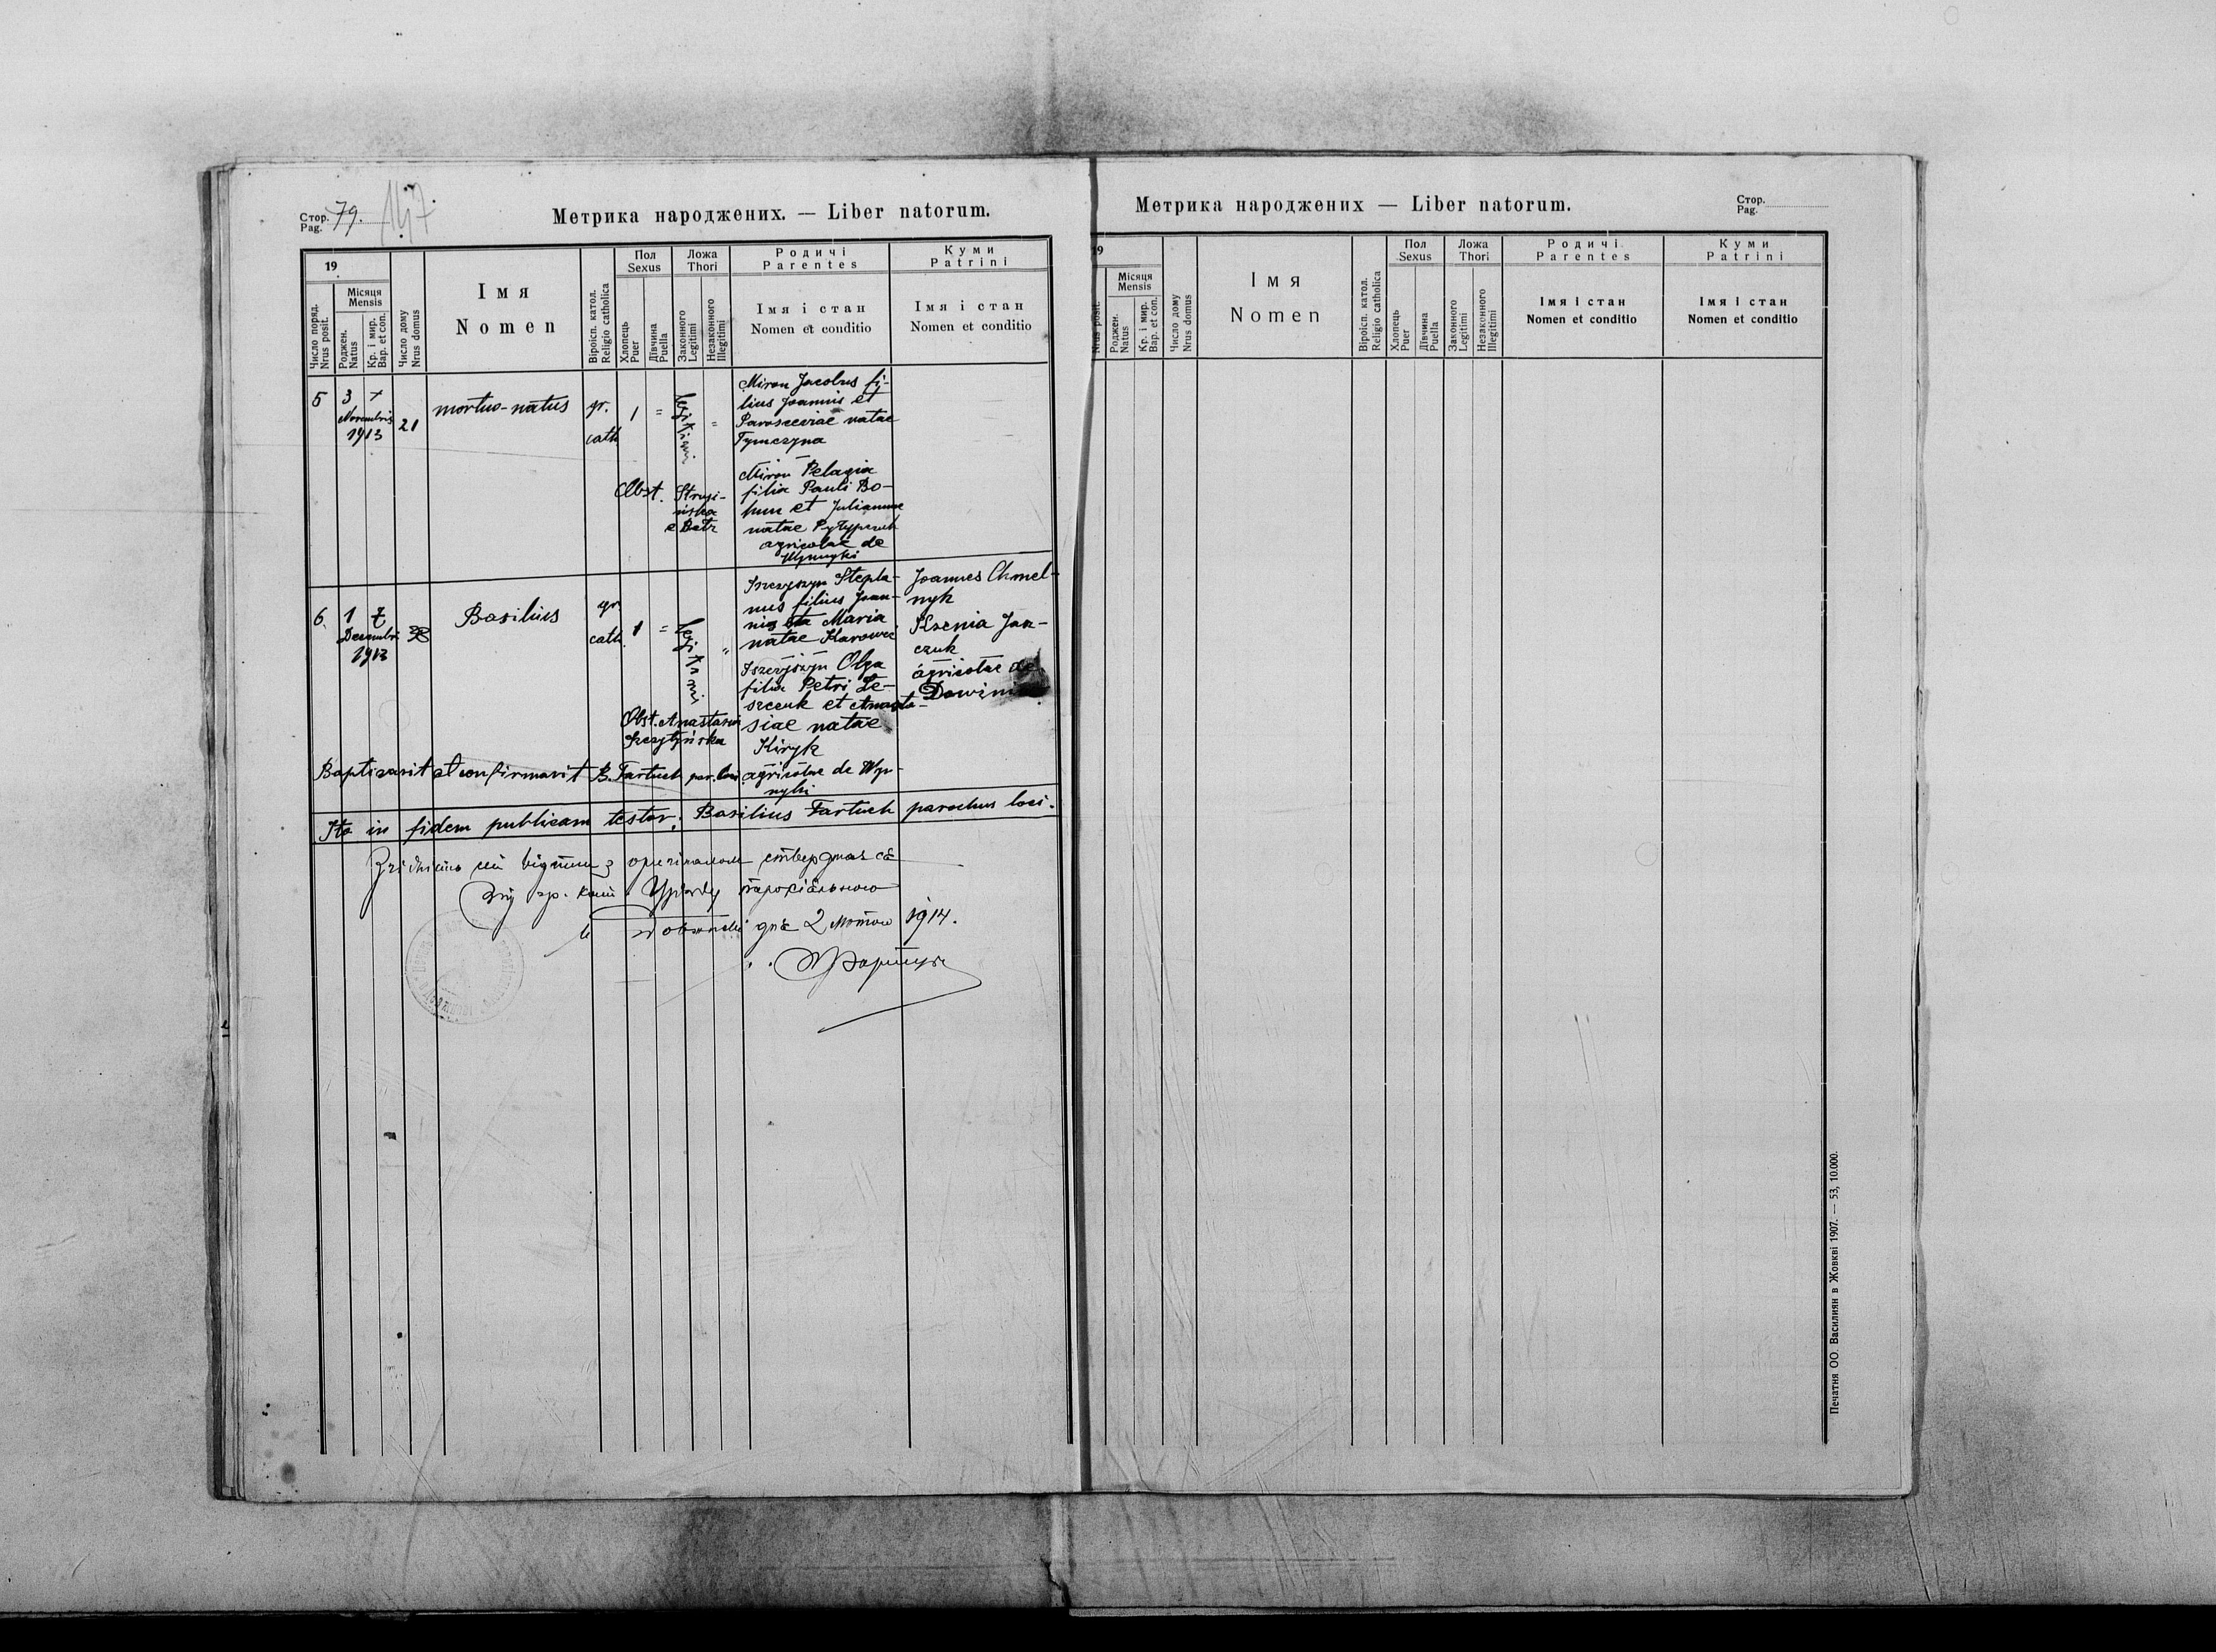 Стор. 79. 147
Pag.
Метрика народжених. — Liber natorum.
19
Число поряд.
Nrus posit.
Місяця
Mensis
Роджен.
Natus
Кр. і мир.
Bap. et con.
Число дому
Nrus domus
Імя
Nomen
Віроісп. катол.
Religio catholica
Пол
Sexus
Хлопець
Puer
Дівчина
Puella
Ложа
Thori
Законного
Legitimi
Незаконного
Illegitimi
Родичі
Parentes
Імя і стан
Nomen et conditio
Куми
Patrini
Імя і стан
Nomen et conditio
5
3 +
Novembris
1913
21
mortuo-natus
gr.
cath
1
"
legitimi
"
Miron Jacobus fi-
lius Joannis et
Parasceviae natae
Tymczyna
Miron Pelagia
filia Pauli Bo-
hun et Julianae
natae
agricolae de
Wynnyki
Obst.
6.
1 7
Decembri
1913
Basilius
gr.
cath.
1
"
legitimi
"
Stepha-
nus filius Joan-
nis Maria
natae
Olga
filia Petri Le-
szczuk et Anasta-
siae natae
Kiryk
agricolae de Wyn-
nyki
Joannes Chmel-
nyk
Ksenia Jan-
czuk
agricolae de
Obst. Anastasia
Baptisavit et confirmavit B. Fartuch par. loci
Ita in fidem publicam testor: Basilius Fartuch parochus loci.
Згідність сеї відписи з оригіналом стверджає ся
Від гр. кат. Уряду парохіяльного
дня 2 лютого 1914.
Метрика народжених — Liber natorum.
Стор.
Pag.
19
Nrus posit.
Місяця
Mensis
Роджен.
Natus
Кр. і мир.
Bap. et con.
Число дому
Nrus domus
Імя
Nomen
Віроісп. катол.
Religio catholica
Пол
Sexus
Хлопець
Puer
Дівчина
Puella
Ложа
Thori
Законного
Legitimi
Незаконного
Illegitimi
Родичі
Parentes
Імя і стан
Nomen et conditio
Куми
Patrini
Імя і стан
Nomen et conditio
Печатня ОО. Василиян в Жовкві 1907. — 53, 10.000.